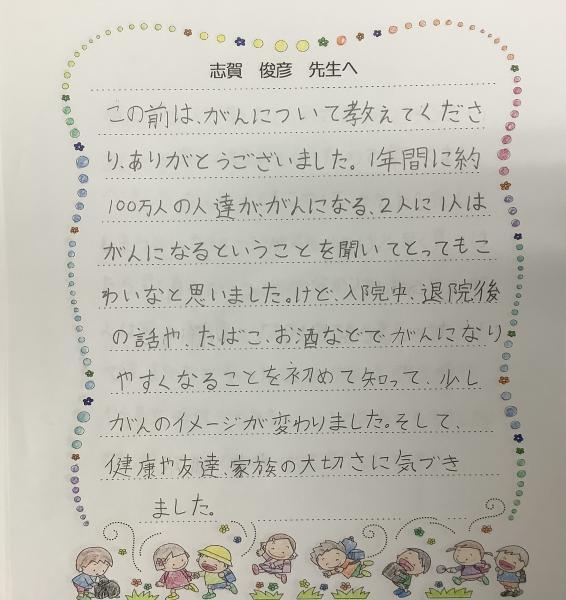 志賀　俊彦　先生へ
この前は、がんについて教えてくださ
り、ありがとうございました。1年間に約
100万人の人達が、がんになる、2人に1人は
がんになるということを聞いてとってもこ
わいなと思いました。けど、入院中、退院後
の話や、たばこ、お酒などでがんになり
やすくなることを初めて知って、少し
がんのイメージが変わりました。そして、
健康や友達、家族の大切さに気づき
ました。